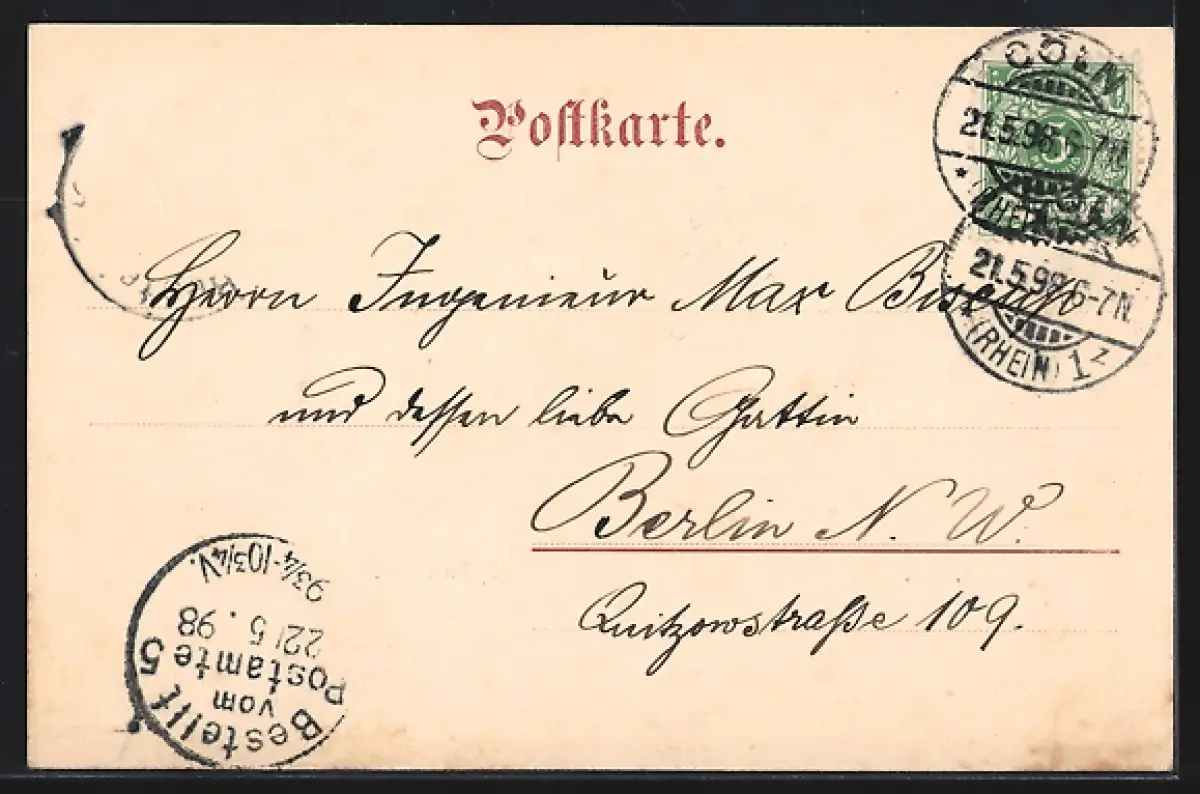 Postkarte.
CÖLN
21.5.98.6-7N.
* (RHEIN)
5
21.5.98.6-7N.
* (RHEIN) 1z
Herrn Ingenieur Max
und dessen liebe Gattin
Berlin N. W.
Quitzowstraße 109.
Bestellt
vom
Postamte 5
22/5.98
93/4-103/4V.